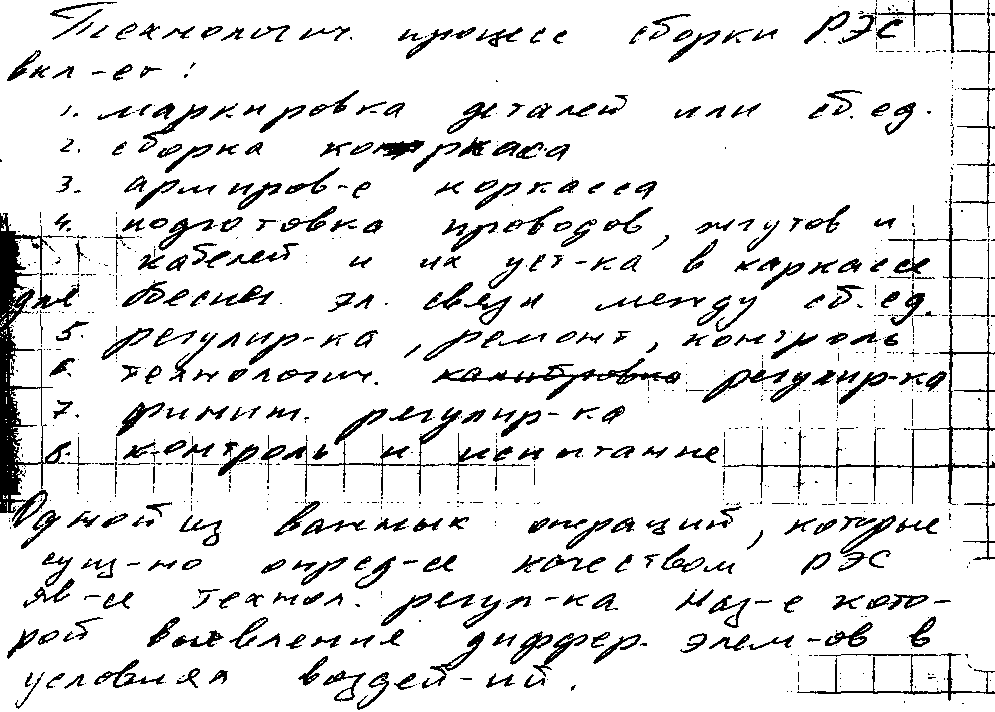 Технологич. процесс сборки РЭС
вкл-ет:
1. маркировка деталей или сб. ед.
2. сборка каркаса
3. армиров-е каркасса
4. подготовка проводов, жгутов и
кабелей и их уст-ка в каркассе
для обеспеч. эл. связи между сб. ед.
5. регулир-ка, ремонт, контроль
6. технологич. калибровка регулир-ка
7. финиш. регулир-ка
8. контроль и испытание
Одной из важных операций, которые
сущ-но опред-ся качеством РЭС
яв-ся технол. регул-ка. Наз-е кото-
рой выявления диффер. элем-ов в
условиях воздей-ий.